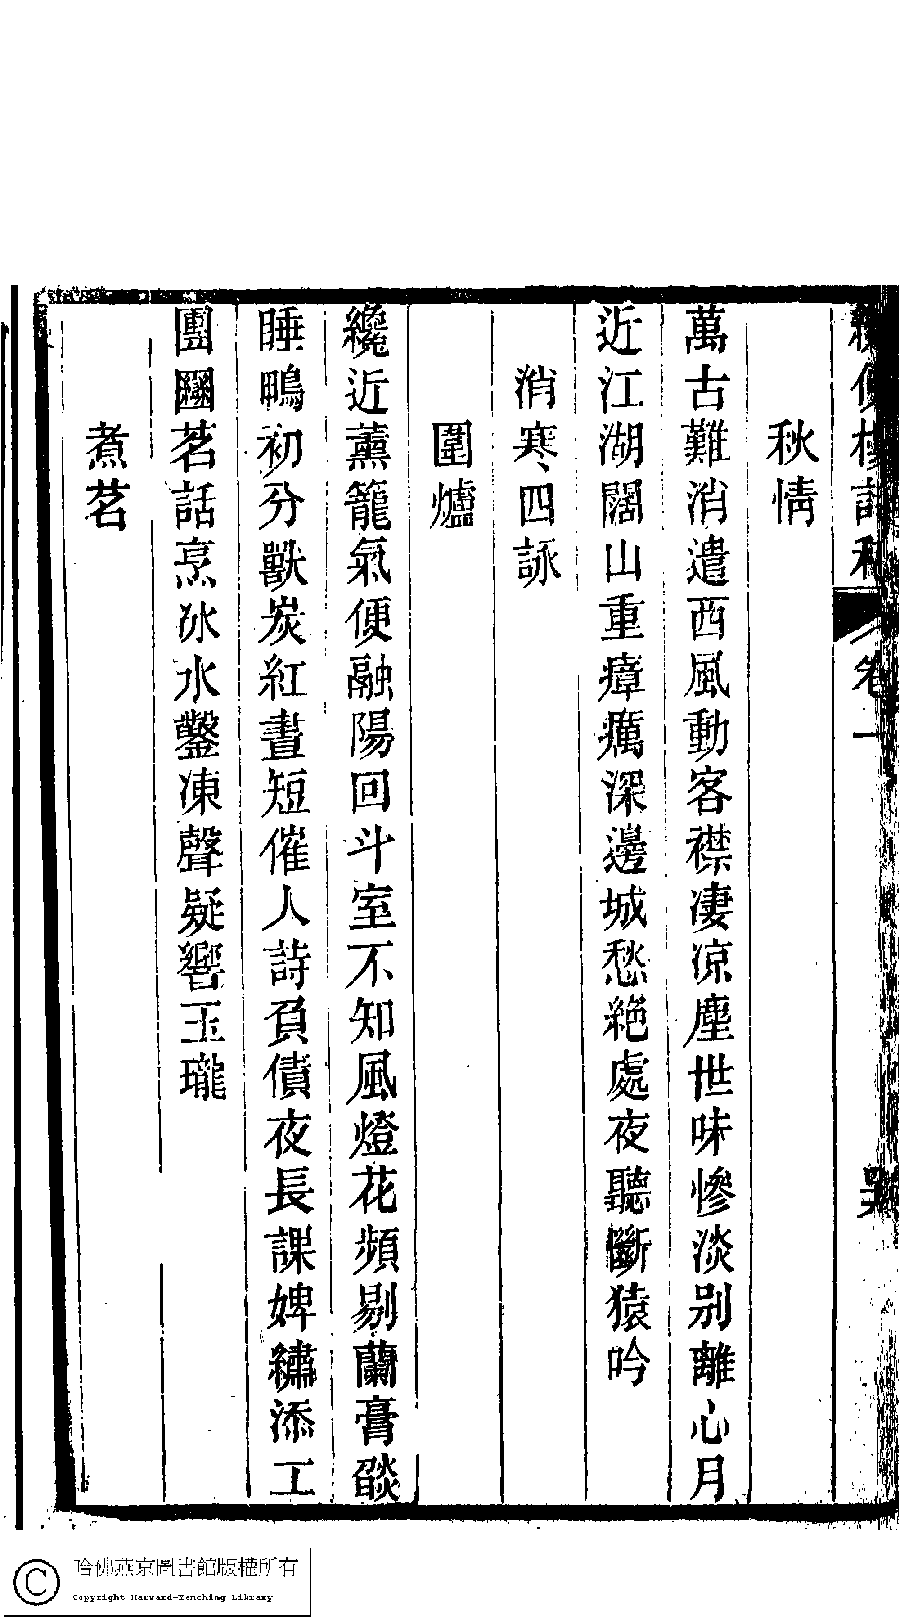 卷一
秋情
萬古難消遣西風動客襟凄凉塵世味慘淡别離心月
近江湖闊山重瘴癘深邊城愁絶處夜聽斷猿吟
消寒四詠
圍爐
纔近薰籠氣便融陽回斗室不知風燈花頻剔蘭膏燄
睡鴨初分獸炭紅晝短催人詩負債夜長課婢繡添工
團圞茗話烹冰水鑿凍聲疑響玉瓏
煮茗
哈佛燕京圖書館版權所有
Copyright Harvard-Yenching Library